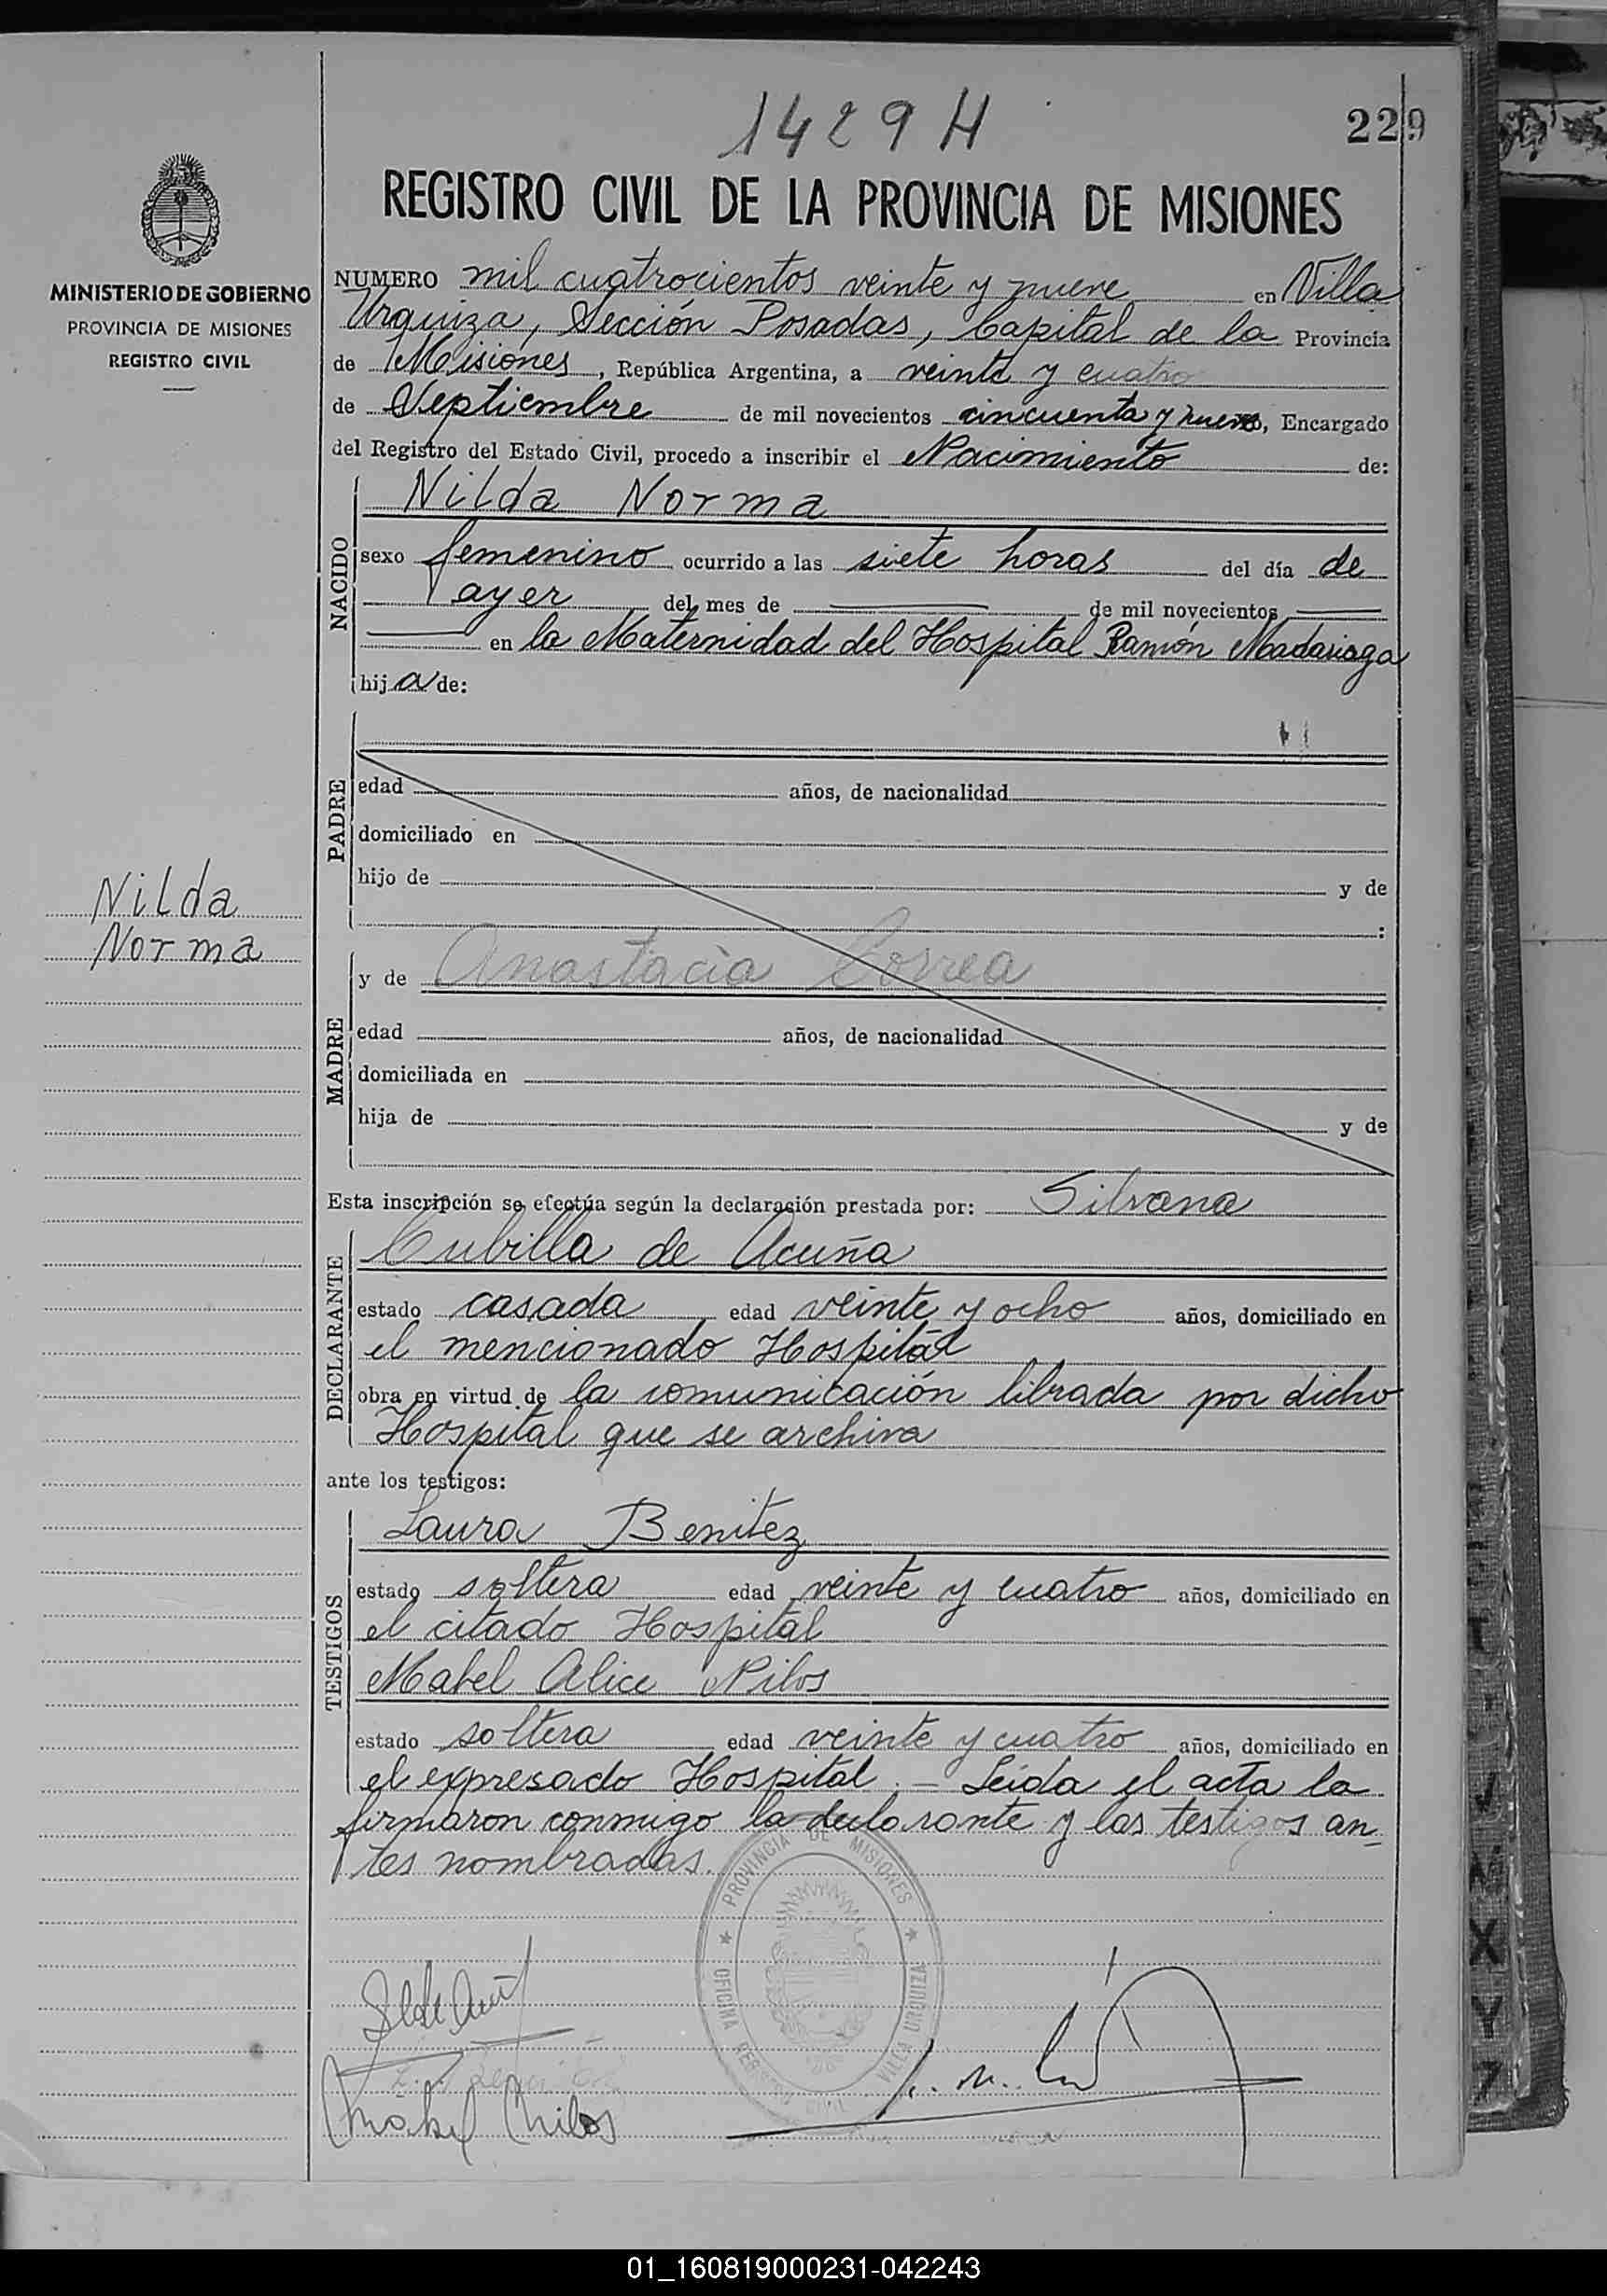 1429 H
229
REGISTRO CIVIL DE LA PROVINCIA DE MISIONES
MINISTERIO DE GOBIERNO
PROVINCIA DE MISIONES
REGISTRO CIVIL
NUMERO mil cuatrocientos veinte y nueve en Villa
Urquiza, Sección Posadas, Capital de la Provincia
de Misiones, República Argentina, a veinte y cuatro
de Septiembre de mil novecientos cincuenta y nueve, Encargado
del Registro del Estado Civil, procedo a inscribir el Nacimiento de:
NACIDO
Nilda Norma
sexo femenino ocurrido a las siete horas del día de
ayer del mes de de mil novecientos
en la Maternidad del Hospital Ramón Madariaga
hija de:
PADRE
edad años, de nacionalidad
domiciliado en
hijo de y de
:
Nilda
Norma
MADRE
y de Anastacia Correa
edad años, de nacionalidad
domiciliada en
hija de y de
Esta inscripción se efectúa según la declaración prestada por: Silvana
DECLARANTE
Cubilla de Acuña
estado casada edad veinte y ocho años, domiciliado en
el mencionado Hospital
obra en virtud de la comunicación librada por dicho
Hospital que se archiva
ante los testigos:
TESTIGOS
Laura Benitez
estado soltera edad veinte y cuatro años, domiciliado en
el citado Hospital
Mabel Alice Nilos
estado soltera edad veinte y cuatro años, domiciliado en
el expresado Hospital. - Leída el acta la
firmaron conmigo la declarante y las testigos an-
tes nombradas.
PROVINCIA DE MISIONES
OFICINA REGISTRO CIVIL VILLA URQUIZA
Mabel Nilos
01_160819000231-042243